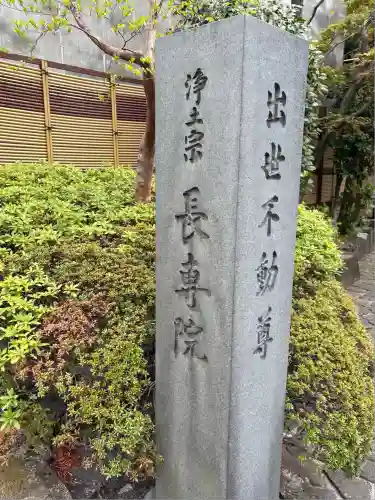 浄土宗 長専院
出世不動尊